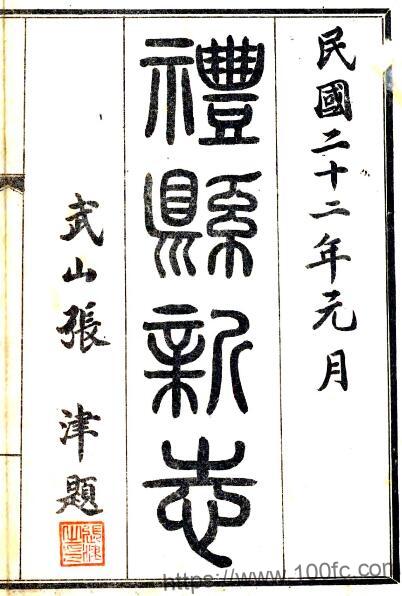 民國二十二年元月
禮縣新志
武山張津題
張津之印
https://www.100fc.com